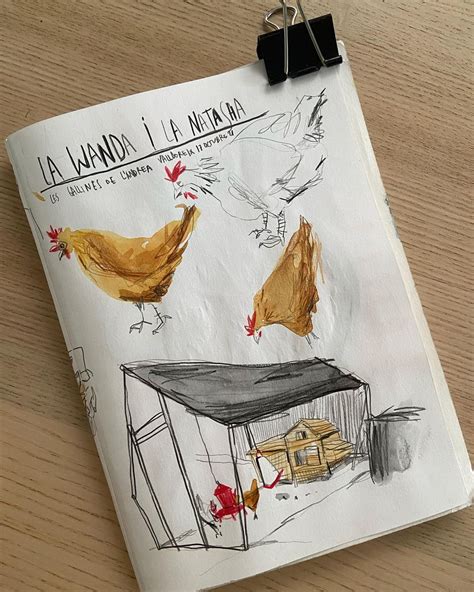 LA WANDA i LA NATASHA
LES GALLINES DE L'ANDREA VALLDOREIX OCTUBRE